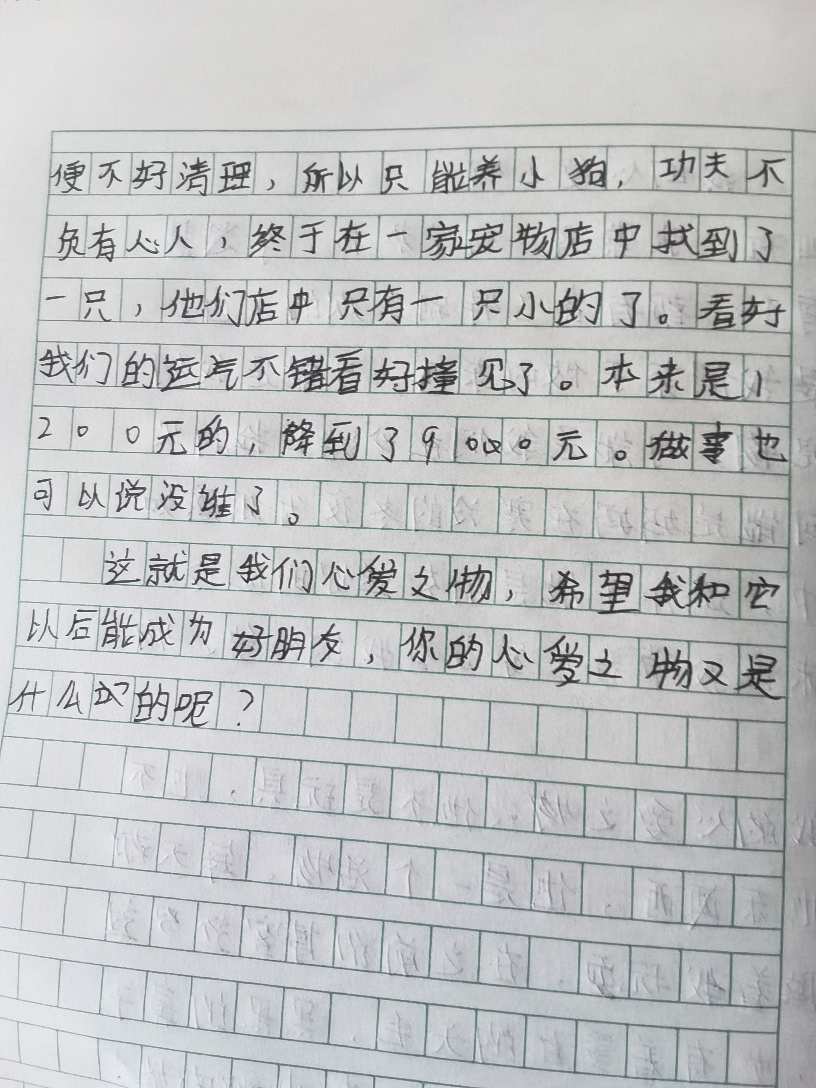 便不好清理，所以只能养小狗，功夫不
负有心人，终于在一家宠物店中找到了
一只，他们店中只有一只小的了。看好
我们的运气不错看好撞见了。本来是1
200元的，降到了9000元。做事也
可以说没谁了。
这就是我们心爱之物，希望我和它
以后能成为好朋友，你的心爱之物又是
什么的呢？